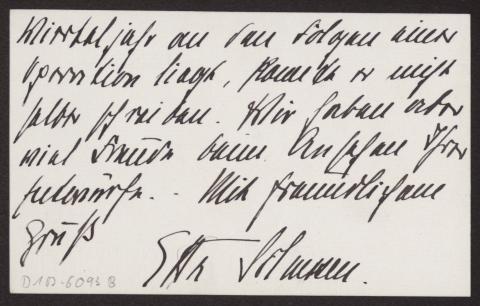 Vierteljahr an den Folgen einer
Operation liegt, konnte er nicht
selber schreiben. Wir haben aber
viel Freude beim Ansehen Ihrer
Entwürfe. - Mit freundlichem
Gruß
D100-6093 B